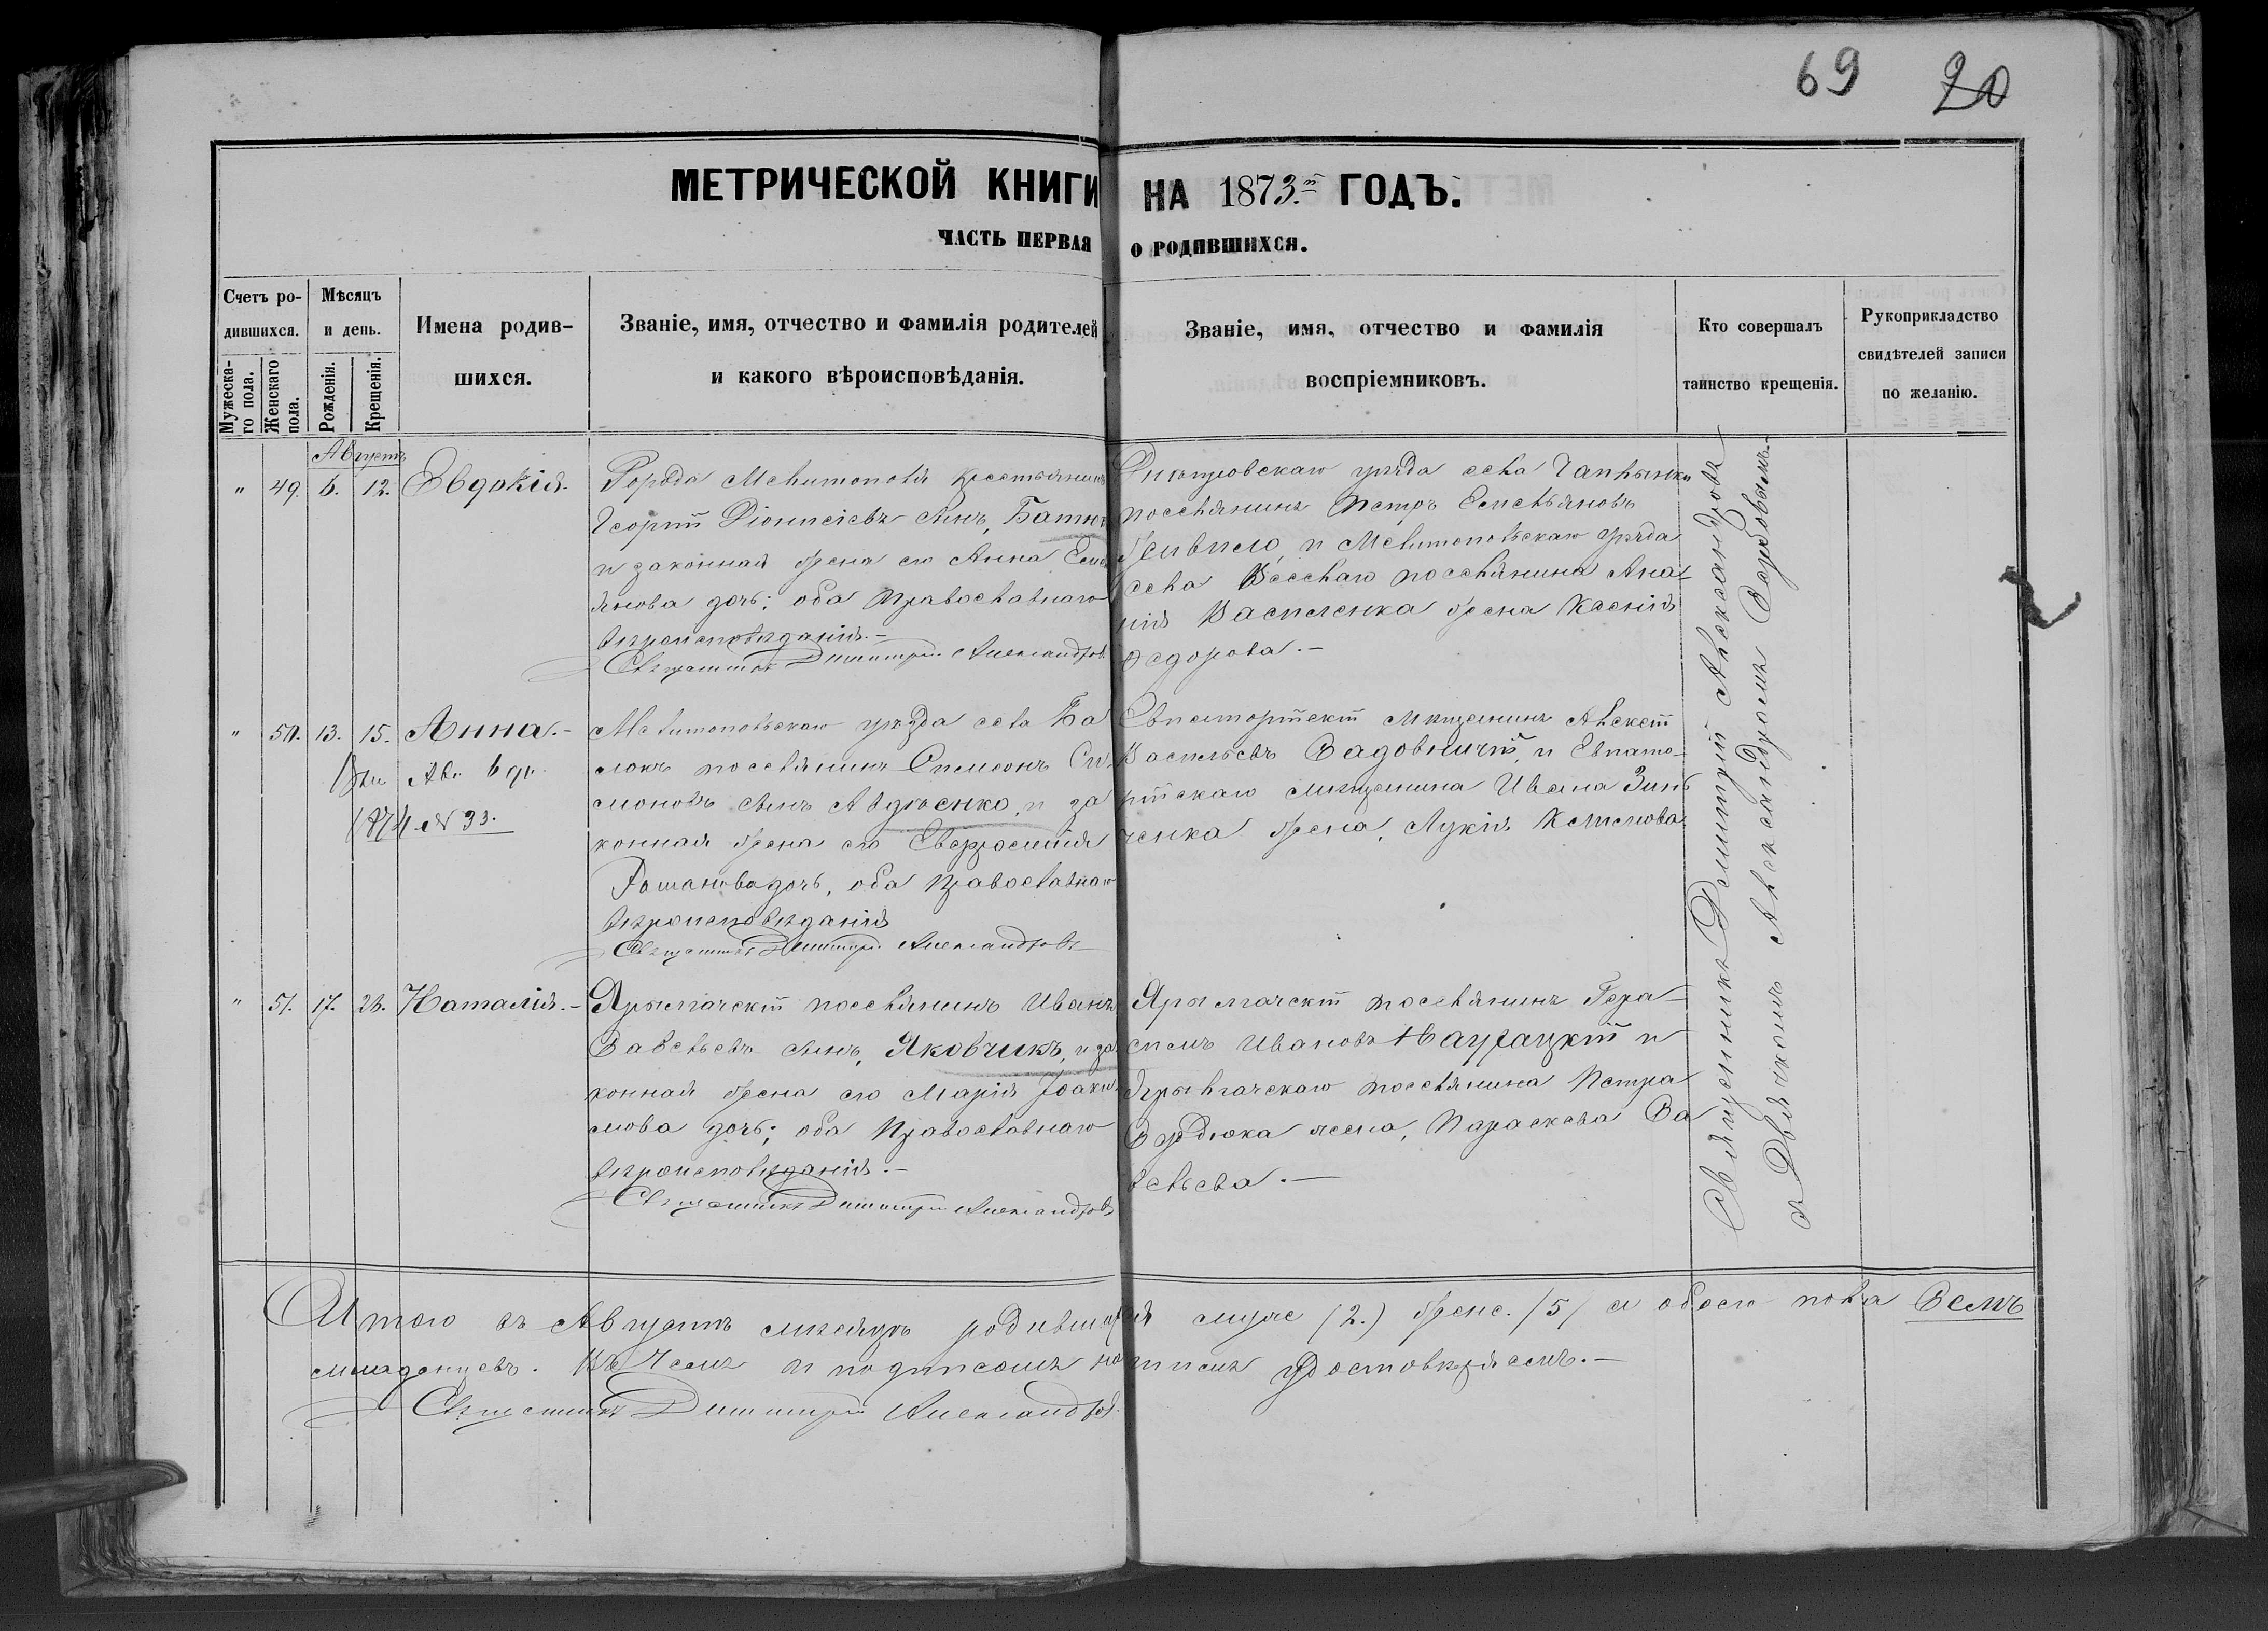 69 20
МЕТРИЧЕСКОЙ КНИГИ НА 1873.й ГОДЪ.
ЧАСТЬ ПЕРВАЯ О РОДИВШИХСЯ.
Счетъ ро-
дившихся.
Мужеска-
го пола.
Женскаго
пола.
Мѣсяцъ
и день.
Рожденія.
Крещенія.
Имена родив-
шихся.
Званіе, имя, отчество и фамилія родителей
и какого вѣроисповѣданія.
Званіе, имя, отчество и фамилія
воспріемниковъ.
Кто совершалъ
таинство крещенія.
Рукоприкладство
свидѣтелей записи
по желанію.
Августъ
" 49. 6. 12. Евдокія.
Города Мелитополя крестьянинъ
Георгій Діонисіевъ сынъ,
и законная жена его Анна Емель
янова дочь; оба Православнаго
вѣроисповѣданія.–
Священникъ Димитрій Александровъ
Днѣпровскаго уѣзда села Чаплынки
поселянинъ Петръ Емельяновъ
и Мелитопольскаго уѣзда
села Веселаго поселянина Ана-
нія Василенка жена Ксенія
Федорова.–
" 50. 13. 15. Анна.–
6
1874 № 33.
Мелитопольскаго уѣзда села Ба
локъ поселянинъ Симеонъ Си-
моновъ сынъ Авдѣенко, и за
конная жена его Евфросинія
Романова дочь, оба Православнаго
вѣроисповѣданія
Священникъ Димитрій Александровъ
Евпаторійскій мѣщанинъ Алексѣй
Васильевъ Задовничій, и Евпато-
рійскаго мѣщанина Ивана Зинь
ченка жена, Лукія Климова.
" 51. 17. 28. Наталія.–
Ярылгачскій поселянинъ Иванъ
Савельевъ сынъ, Яковчикъ, и за
конная жена его Марія Іоаки-
мова дочь; оба Православнаго
вѣроисповѣданія.–
Священникъ Димитрій Александровъ
Ярылгачскій поселянинъ Гера-
симъ Ивановъ и
Ярылгачскаго поселянина Петра
Сердюка жена, Параскева Са
вельева.–
Священникъ Димитрій Александровъ
съ Дьячкомъ Александромъ
Итого въ Августѣ мѣсяцѣ родившихся муже /2./ женс. /5/ а обоего пола Семь
младенцевъ. Въ чемъ и подписомъ нашимъ удостовѣряемъ.–
Священникъ Димитрій Александровъ